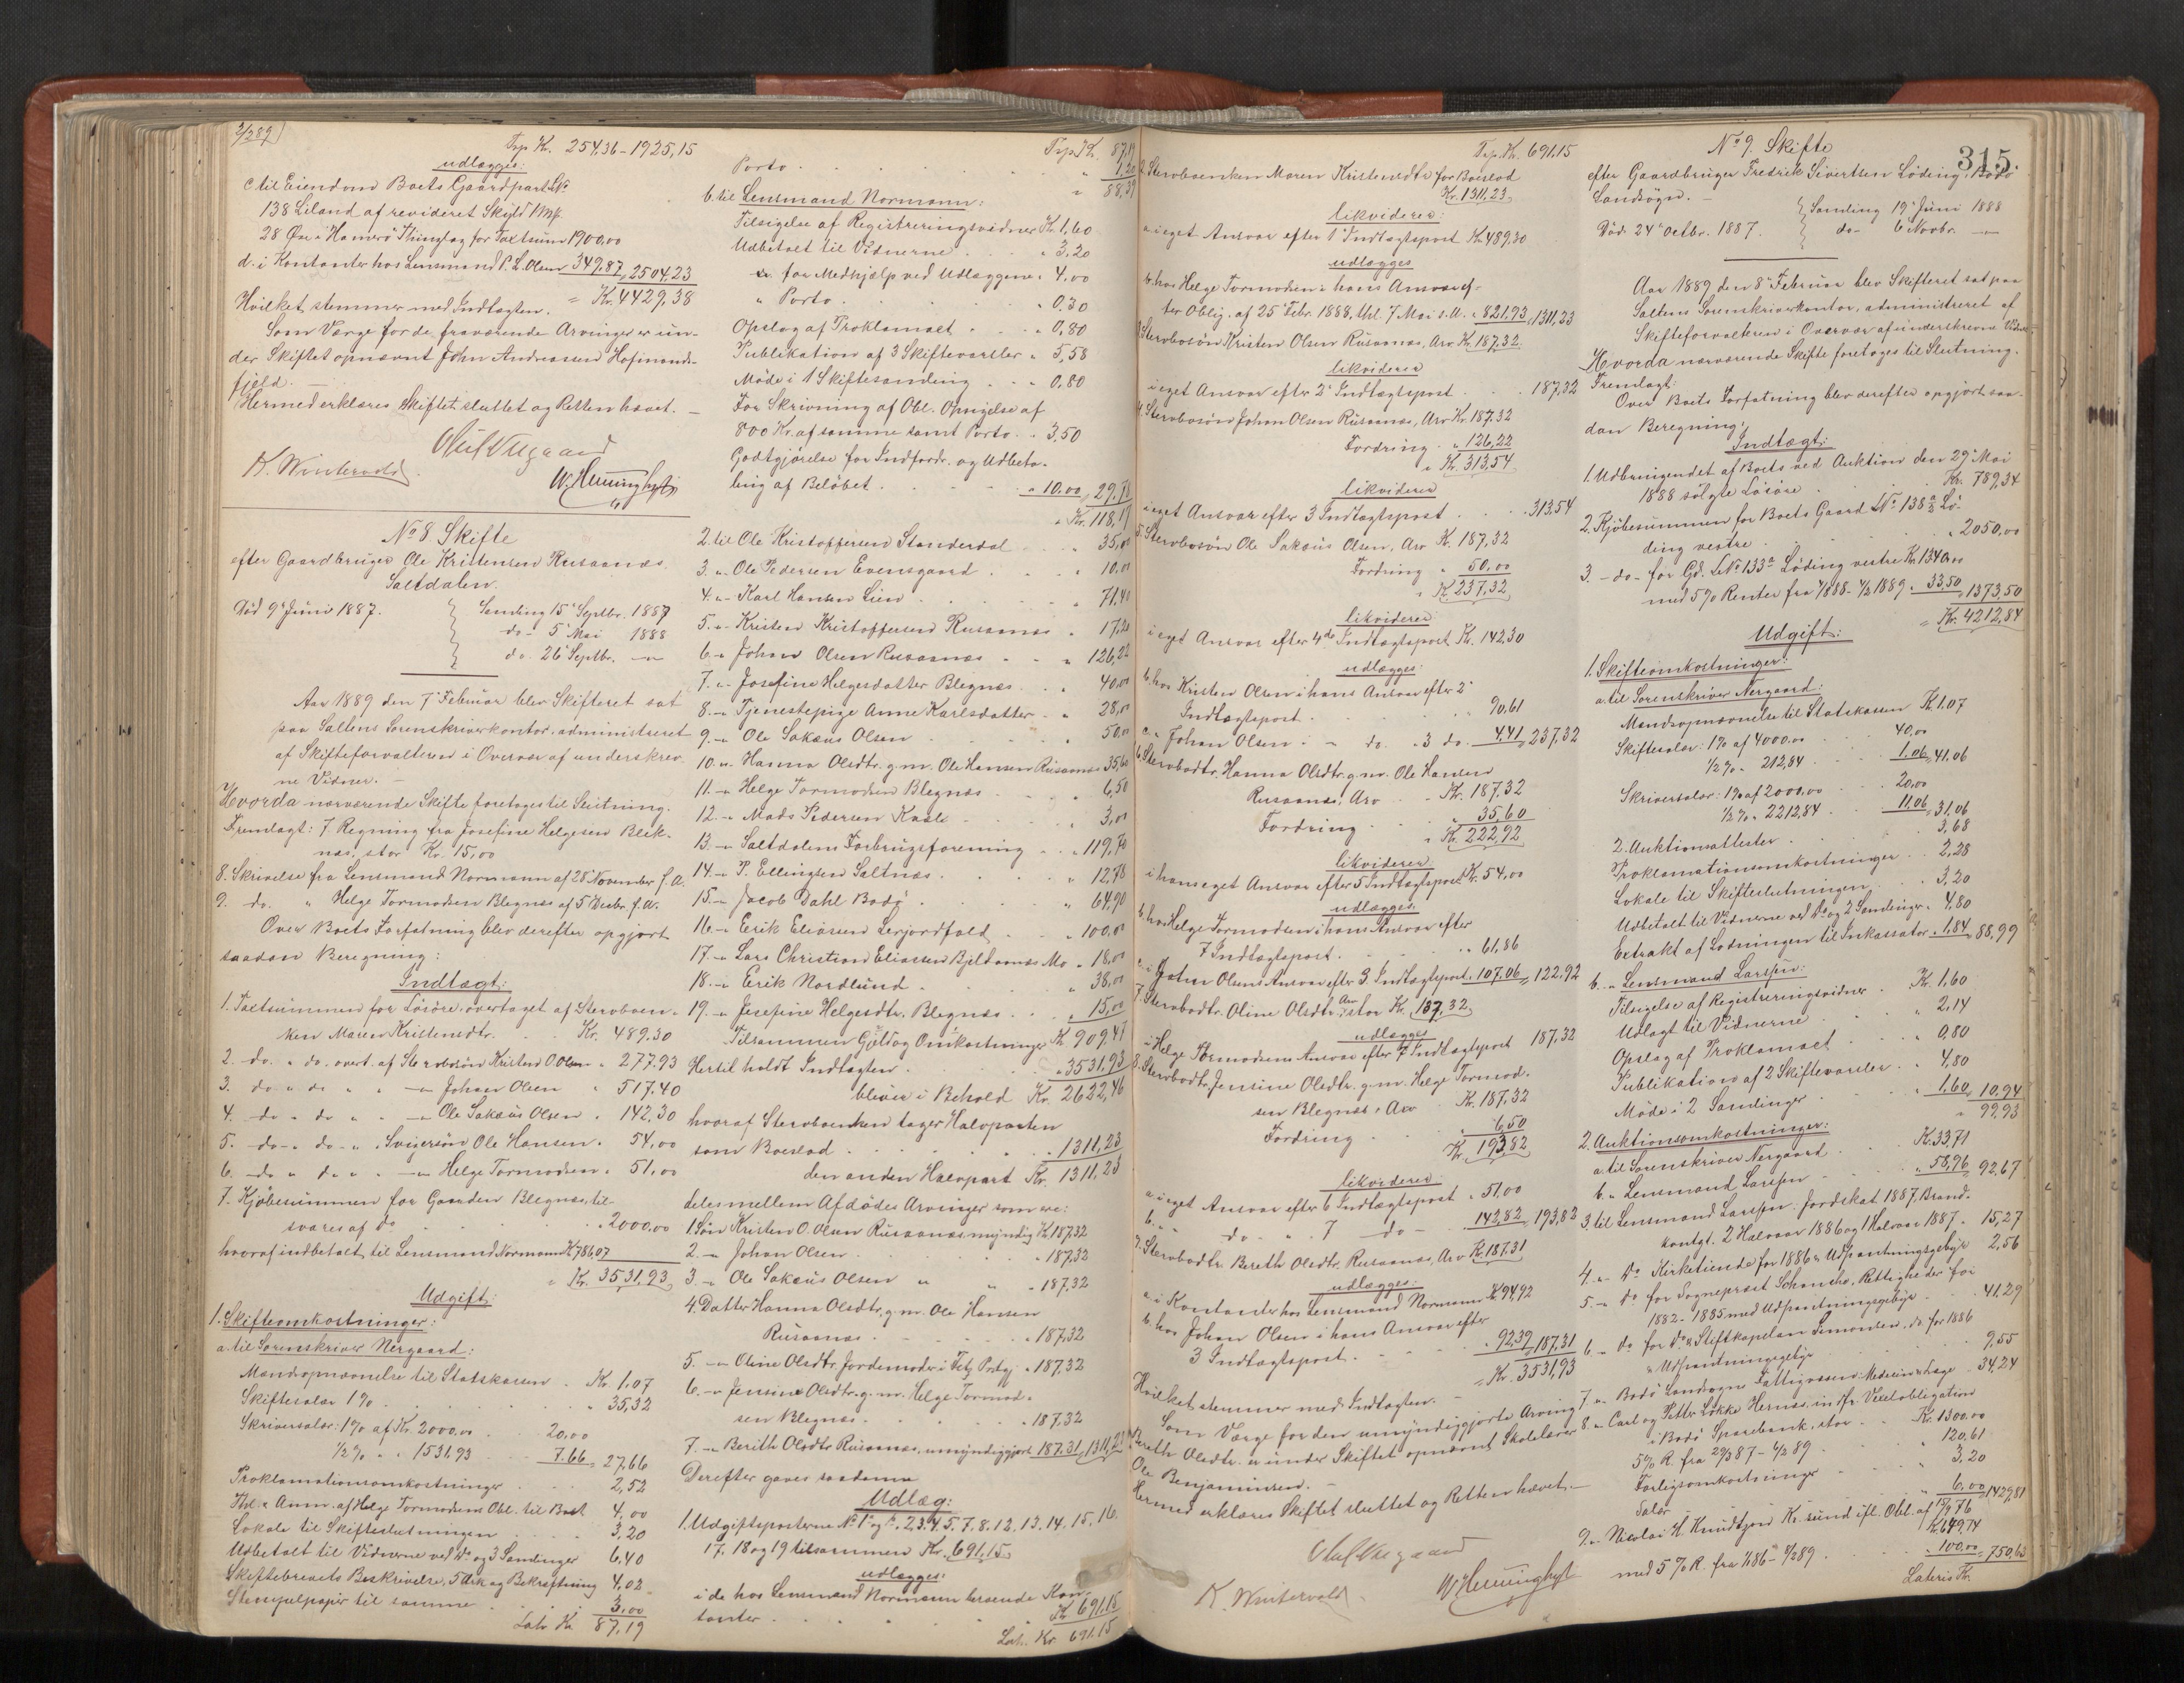 7/289
Trsp Kr. 254,36 - 1925,15
udlægges:
c til Eiendom Boets Gaardpart LNo
138 Liland af revideret Skyld 1 Mk
28 Øre i Hamerø Thinglag for Taxtsum 1900,00
d. i Kontanter hos Lensmand P. L. Olsen 349,87 2504,23
Kr. 4429,38
Hvilket stemmer med Indtægten.
Som Værge for de fraværende Arvinger er un-
der Skiftet opnævnt John Andreassen Hofmands-
fjeld.
Hermed erklæres Skiftet sluttet og Retten hævet.
K. Wintervold
No 8. Skifte
efter Gaardbruger Ole Kristensen Rusaanæs
Saltdalen.
Død 9' Juni 1887.
Samling 15' Septbr. 1887
do - 5' Mai 1888
do. 26' Septbr. -"-
Aar 1889 den 7' Februar blev Skifteret sat
paa Saltens Sorenskriverkontor, administreret
af Skifteforvalteren i Overvær af underskrev-
ne Vidner. -
Hvorda nærværende Skifte foretoges til Slutning.
Fremlagt: 7. Regning fra Josefine Helgesen Blek-
næs, stor Kr. 15,00
8. Skrivelse fra Lensmand Normann af 28' November f.A.
9. do. " Helge Tormodsen Blegnæs af 5' Decbr. f.A.
Over Boets Forfatning blev derefter opgjort
saadan Beregning:
Indtægt:
1. Taxtsummen for Løsøre, overtaget af Stervboen-
ken Maren Kristensdtr. Kr. 489,30
2. do. " do. overt. af Stervbosøn Kristen O. Olsen " 277,93
3. do " do " " -"- Johan Olsen " 517,40
4. do " do " " -"- Ole Sakæus Olsen " 142,30
5. do - do " Svigersøn Ole Hansen " 54,00
6. do " do " " -"- Helge Tormodsen " 51,00
7. Kjøbesummen for Gaarden Blegnæs, til-
svares af do " 2000,00
hvoraf indbetalt til Lensmand Normann K 786,07
Kr. 3531,93
Udgift:
1. Skifteomkostninger:
a. til Sorenskriver Nergaard:
Mandsopnævnelse til Statskassen Kr. 1,07
Skiftesalær 1% " 35,32
Skriversalær: 1% af Kr. 2000,00 20,00
1/2 % " " 1531,93 7.66 27,66
Proklamationsomkostninger 2,52
Thl. & Ann. af Helge Tormodsens Obl. til Boet 4,00
Lokale til Skifteslutningen 3,20
Udbetalt til Vidnerne ved do og 3 Samlinger 6,40
Skiftebrevets Beskrivelse, 5 Ark og Bekræftning 4,02
Stempelpapir til samme 3,00
Lats Kr. 87,19
Trsp. Kr. 87,19
Porto 1,20
" 88,39
b. til Lensmand Normann:
Tilsigelse af Registreringsvidner Kr. 1,60
Udbetalt til Vidnerne " 3,20
" for Medhjælp ved Udlæggene " 4,00
" Porto " 0,30
Opslag af Proklamaet " 0,80
Publikation af 3 Skiftevarsler " 5,58
Møde i 1 Skiftesamling " 0,80
For Skrivning af Obl. Opsigelse af
800 Kr. af samme samt Porto " 3,50
Godtgjørelse for Indfordr. og Udbeta-
ling af Beløbet " 10,00 29,78
Kr. 118,17
2. til Ole Kristoffersen Standerdal " 35,00
3. " Ole Pedersen Evensgaard " 10,00
4. " Karl Hansen Lien " 71,40
5. " Kristen Kristoffersen Rusaanæs " 17,20
6. " Johan Olsen Rusaanæs " 126,22
7. " Josefine Helgesdatter Blegnæs " 40,00
8. " Tjenestepige Anne Karlsdatter " 28,00
9. " Ole Sakæus Olsen 50,00
10. " Hanna Olsdtr. g.m. Ole Hansen Rusaanæs 35,60
11. " Helge Tormodsen Blegnæs " 6,50
12. " Mads Pedersen " 3,00
13. " Saltdalens Forbrugsforening " 119,70
14. " P. Ellingsen Saltnæs " 12,78
15. " Jacob Dahl Bodø " 64,90
16. " Erik Eliasen Lerjordfald " 100,00
17. " Lars Christian Eliassen Bjeldaanæs Mo " 18,00
18. " Erik Nordlund " 38,00
19. " Josefine Helgesdtr. Blegnæs " 15,00
Tilsammen Gjæld og Omkostninger Kr. 909,47
Hertil holdt Indtægten " 3531,93
bliver i Behold Kr. 2622,46
hvoraf Stervboenken tager Halvparten
som Boeslod " 1311,23
den anden Halvpart Kr. 1311,23
deles mellem Afdødes Arvinger som er:
1. Søn Kristen O. Olsen Rusaanæs, myndig Kr. 187,32
2. " Johan Olsen " 187,32
3. " Ole Sakæus Olsen " " 187,32
4. Datter Hanna Olsdtr, g.m. Ole Hansen
Rusaanæs " 187,32
5. " Oline Olsdtr. Jordemoder i Prstgj. " 187,32
6. " Jensine Olsdtr. g.m. Helge Tormod-
sen Blegnæs " 187,32
7. " Berith Olsdtr Rusaanæs, umyndiggjort 187,31 1311,23
Derefter gaves saadanne
Udlæg:
1. Udgiftsposterne No 1a og b, 2.3.4.5.7.8.12.13.14.15.16.
17. 18 og 19 tilsammen Kr. 691,15
udlægges:
i de hos Lensmand Normann beroende Kon-
tanter Kr. 691,15
Lats. Kr. 691.15
Trsp. Kr. 691.15
2. Stervboenken Maren Kristensdtr for Boeslod
Kr. 1311,23
likvideres:
a i eget Ansvar efter 1' Indtægtspost Kr 489,30
udlægges
b. hos Helge Tormodsen i hans Ansvar ef-
ter Oblig. af 25' Febr. 1888, thl. 7 Mai s.A. " 821,93 1311,23
3. Stervbosøn Kristen Olsen Rusaanæs, Arv Kr. 187,32
likvideres
i eget Ansvar efter 2' Indtægtspost 187,32
4. Stervbosøn Johan Olsen Rusaanæs, Arv Kr 187.32
Fordring " 126,22
Kr. 313,54
likvideres
i eget Ansvar efter 3' Indtægtspost 313,54
5. Stervbosøn Ole Sakæus Olsen, Arv K. 187,32
Fordring " 50,00
K. 237,32
likvideres
i eget Ansvar efter 4de Indtægtspost Kr. 142,30
udlægges:
b. hos Kristen Olsen i hans Ansvar efter 2'
Indtægtspost " 90,61
c. " Johan Olsen " do. " 3 do 4,41 237,32
6. Stervbodtr. Hanna Olsdtr. g.m. Ole Hansen
Rusaanæs, Arv Kr. 187,32
Fordring 35,60
Kr. 222,92
likvideres
i hans eget Ansvar efter 5' Indtægtspost Kr. 54,00
udlægges
b. hos Helge Tormodsen i hans Ansvar efter
7' Indtægtspost " 61,86
c. i Johan Olsens Ansvar efter 3' Indtægtspost 107,06 122,92
7. Stervbodtr. Oline Olsdtr. Arv stor Kr. 187,32
udlægges
i Helge Tormodsens Ansvar efter 7' Indtægtspost 187,32
8. Stervbodtr. Jensine Olsdtr. g.m. Helge Tormod-
sen Blegnæs, Arv Kr. 187,32
Fordring 6,50
Kr. 193,82
likvideres
a i eget Ansvar efter 6' Indtægtspost " 51,00
b. " do " 7 do - 142,82 193,82
9. Stervbodtr. Bereth Olsdtr. Rusaanæs, Arv Kr. 187,31
udlægges:
a. i Kontanter hos Lensmand Normann K. 94,92
b. hos Johan Olsen i hans Ansvar efter
3' Indtægtspost " 92,39 187,31
Kr. 3531,93
Hvilket stemmer med Indtægten. -
Som Værge for den umyndiggjorte Arving
Bereth Olsdtr. er under Skiftet opnævnt Skolelærer
Ole Benjaminsen. -
Hermed erklæres Skiftet sluttet og Retten hævet. -
K. Wintervold
315.
No 9. Skifte
efter Gaardbruger Fredrik Sivertsen Løding, Bodø
Landsogn. -
Død 24' Octbr. 1887.
Samling 19' Juni 1888
do - 6' Novbr. -"-
Aar 1889 den 8' Februar blev Skifteret sat paa
Saltens Sorenskriverkontor, administreret af
Skifteforvalteren i Overvær af underskrevne Vidner.
Hvorda nærværende Skifte foretoges til Slutning.
Fremlagt:
Over Boets Forfatning blev derefter opgjort saa-
dan Beregning:
Indtægt:
1. Udbringendet af Boets ved Auktion den 29' Mai
1888 solgte Løsøre Kr. 789,34
2. Kjøbesummen for Boets Gaard LNo 138 Lø-
ding vestre " 2050,00
3. - do - for Gd. LNo 133a Løding vestre Kr. 1340,00
med 5% Renter fra 1/8 88 - 1/2 1889 33,50 1373,50
Kr. 4212,84
Udgift:
1. Skifteomkostninger:
a. til Sorenskriver Nergaard:
Mandsopnævnelse til Statskassen K. 1.07
Skiftesalær: 1% af 4000,00 40,00
1/2 % " 212,84 1.06 41,06
Skriversalær: 1% af 2000,00 20,00
1/2 % " 2212,84 11,06 31,06
2. Auktionsattester 3,68
Proklamationsomkostninger 2,28
Lokale til Skifteslutningen 3,20
Udbetalt til Vidnerne ved do og 2 Samlinger 4,80
Extrakt af Lodningen til Inkassator 1,84 88,99
b. " Lensmand Larssen:
Tilsigelse af Registreringsvidner Kr. 1,60
Udlagt til Vidnerne " 2,14
Opslag af Proklamaet " 0,80
Publikation af 2 Skiftevarsler 4,80
Møde i 2 Samlinger 1,60 10,94
" 99,93
2. Auktionsomkostninger:
a. til Sorenskriver Nergaard K. 33,71
b. " Lensmand Larssen " 58,96 92,67
3. til Lensmand Larssen: Jordskat 1887, Brand-
kontgt. 2' Halvaar 1886 og 1' Halvaar 1887 15,27
4. " do Kirketiende for 1886 & Udpantningsgebyr 2,56
5. " do for Sogneprest Schanche, Rettigheder for
1882-1885 med Udpantningsgebyr 41,29
6. " do for do & Stiftskapelan Simonsen, do for 1886
& Udpantningsgebyr 9,55
7. " Bodø Landsogns Fattigvæsen: Medicin & Læge 34,24
8. " Carl og Petter Løkke Hernæs, indfr. Vexelobligation
i Bodø Sparebank, stor Kr. 1300,00
5% R. fra 29/3 87 - 6/2 89 120,61
Forligsomkostninger 3,20
Salær 6,00 1429,81
9. " Nicolai H. Knudtzon Kr.sund ifl. Obl. af 15/9 76
K. 649,74
med 5% R. fra 1/1 86 - 8/2 89 100,00 750,63
Lateris Kr.